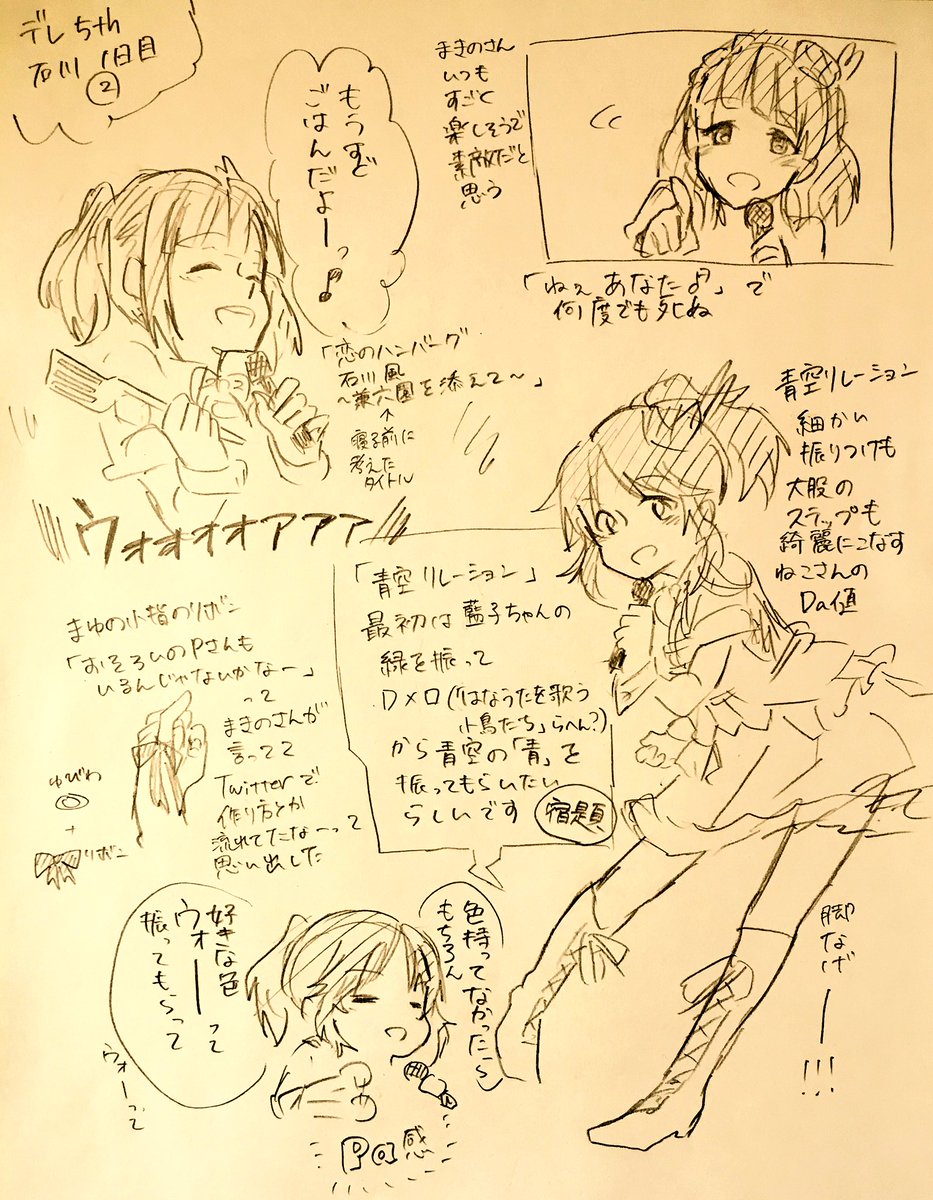 デレ5th
石川 1日目
②
もうすぐ
ごはんだよーっ♪
まきのさん
いつも
すごく
楽しそうで
素敵だと
思う
「ねぇ あなた♪」で
何度でも死ぬ
「恋のハンバーグ
石川風
〜兼六園を添えて〜」
↑
寝る前に
考えた
タイトル
ウォオオオアアア
青空リレーション
細かい
振りつけも
大股の
ステップも
綺麗にこなす
ねこさんの
Da値
「青空リレーション」
最初は藍子ちゃんの
緑を振って
Dメロ(「はなうたを歌う
小鳥たち」らへん?)
から青空の「青」を
振ってもらいたい
らしいです 宿題
まゆの小指のリボン
「おそろいのPさんも
いるんじゃないかなー」
って
まきのさんが
言ってて
Twitterで
作り方とか
流れてたなーって
思い出した
ゆびわ
+
リボン
色持ってなかったら
もちろん
好きな色
ウォーーって
振ってもらって
ウォーって
Pa感
脚なげーー!!!